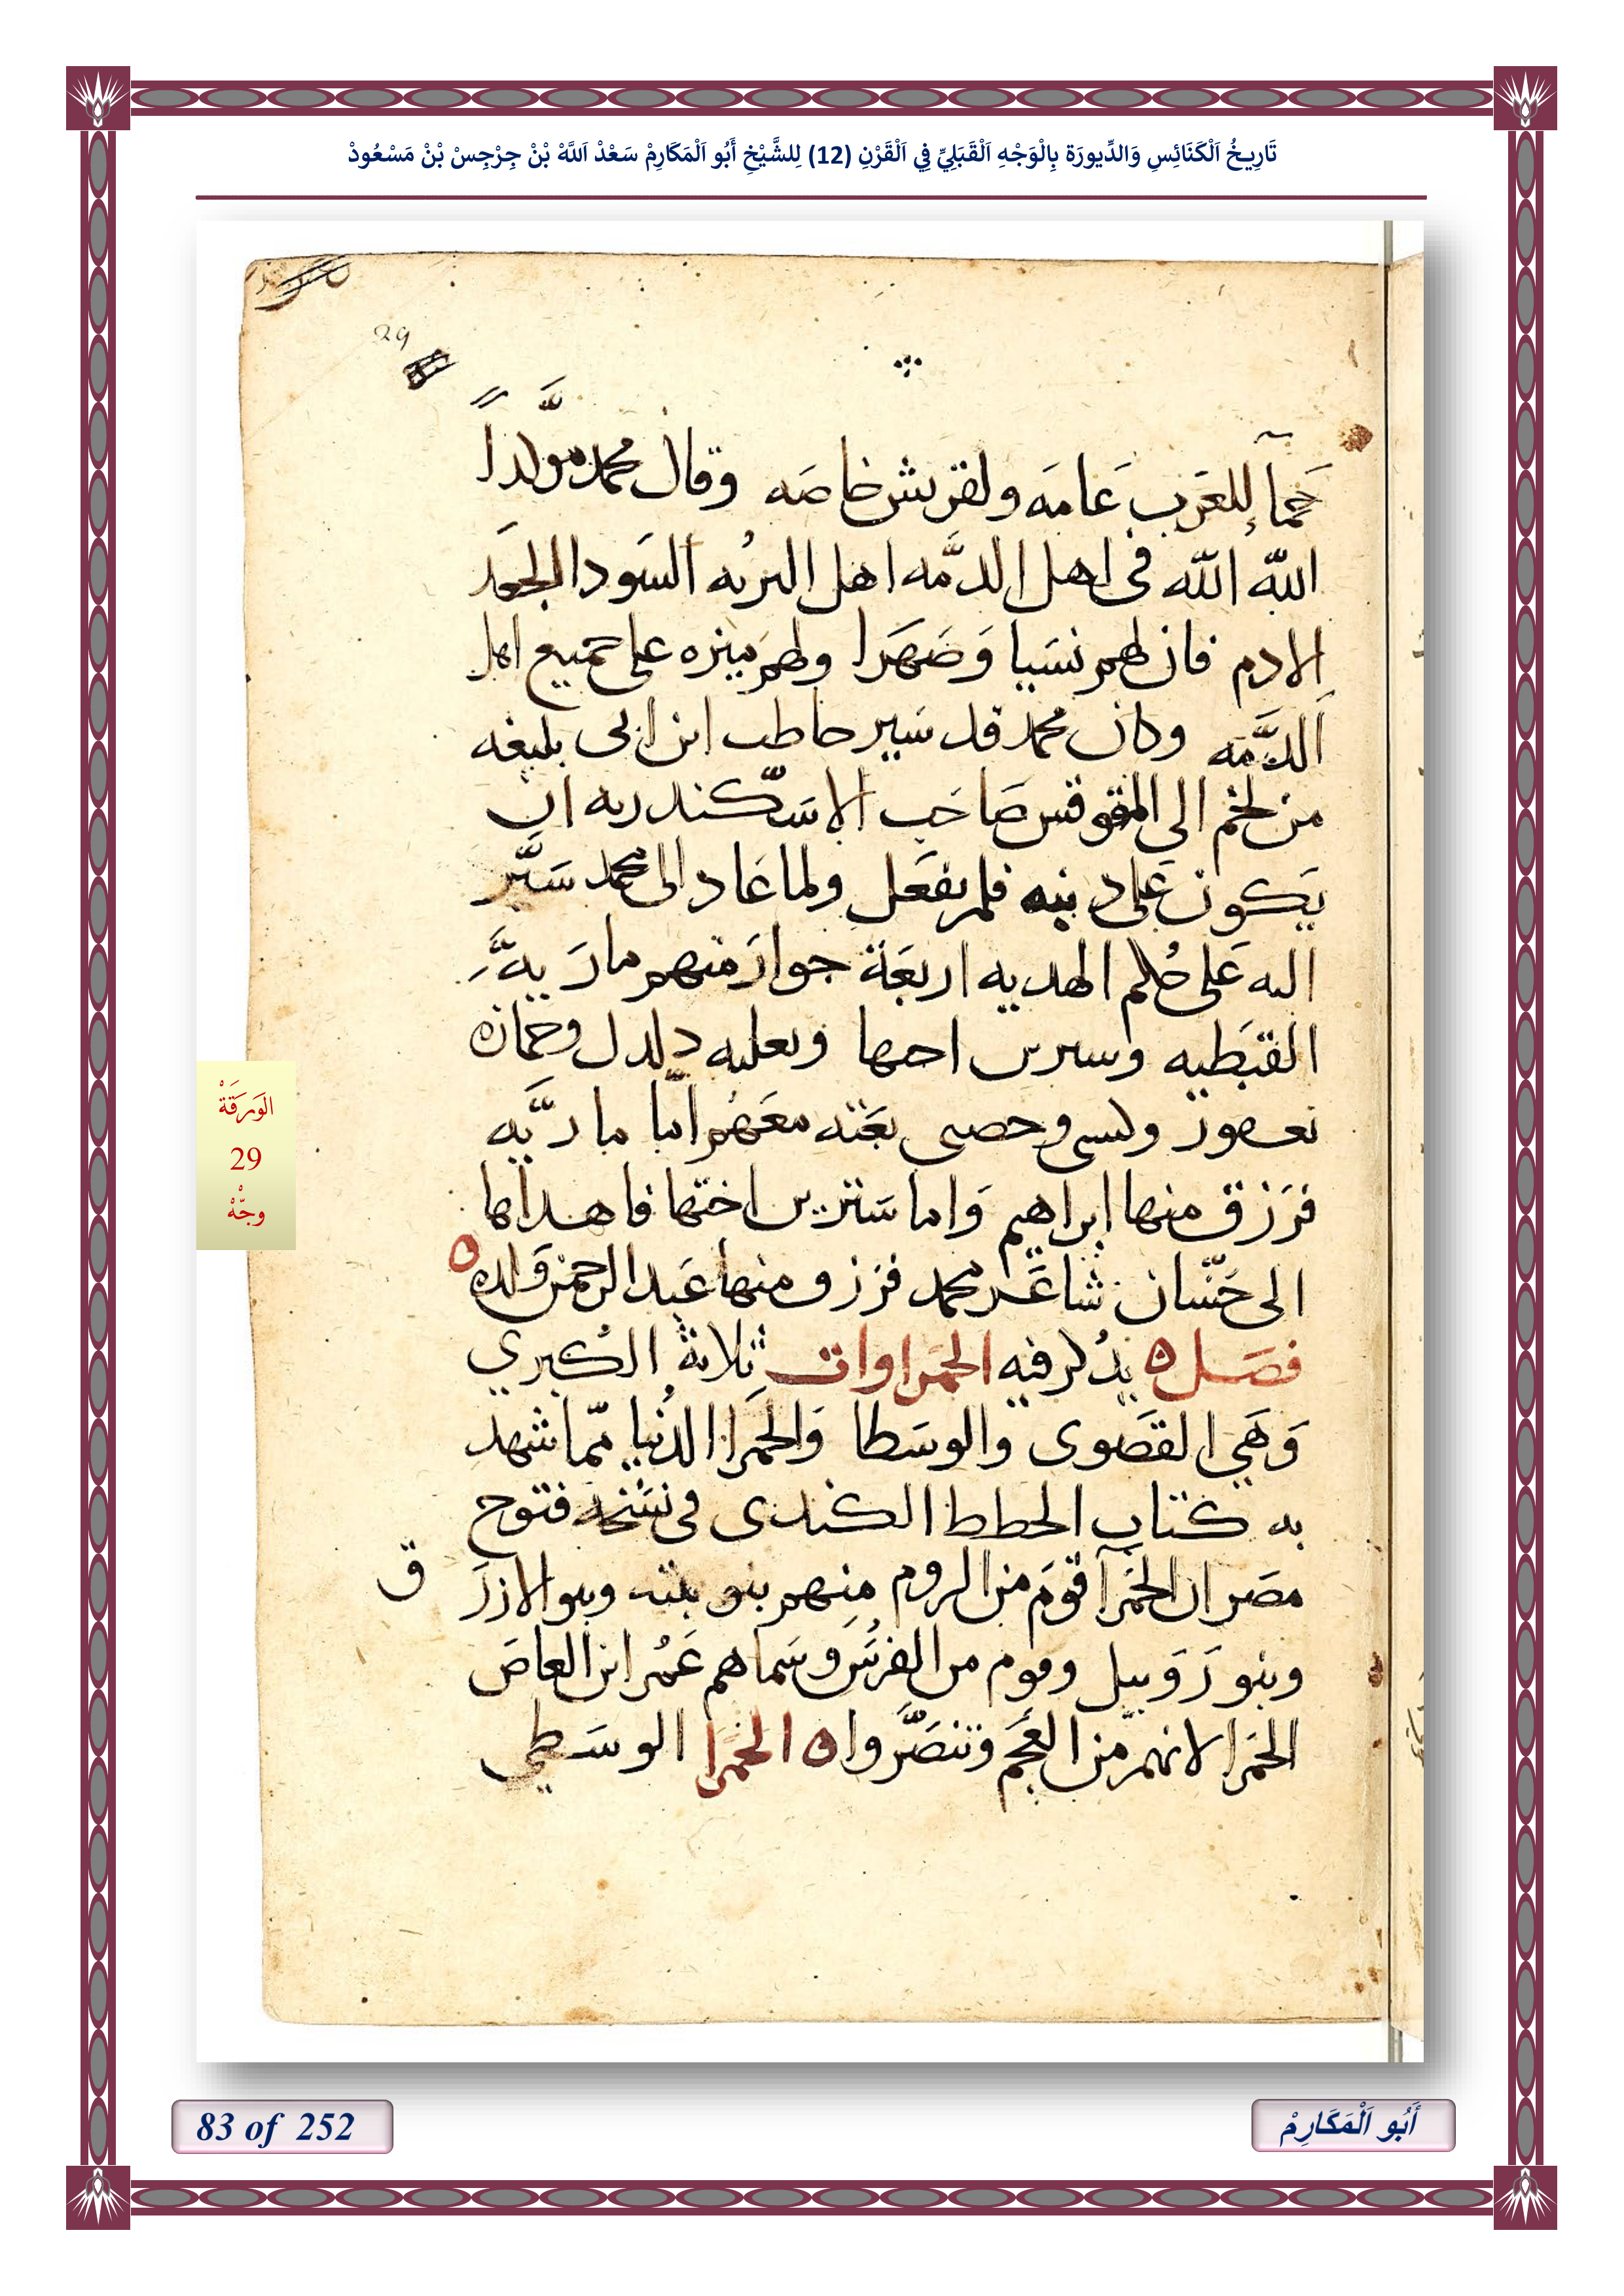 تَارِيخُ اَلْكَنَائِسِ وَالدِّيورَة بِالْوَجْهِ اَلْقَبَلِيِّ فِي اَلْقَرْنِ (12) لِلشَّيْخِ أَبُو اَلْمَكَارِمْ سَعْدْ اَللَّهْ بْنْ جِرْجِسْ بْنْ مَسْعُودْ
29
للعَرَب عَامَه ولقريش خاصَه وقال محمد
اللّه اللّه فى اهل الدمَّه اهل التربُه السَودا الجعد
الادم فان لهم نسَيا وَصَهَرا ولهم ميزه على جميع اهل
الدَّمَّه وكان محمد قد سَير حاطب ابن ابى بليغه
من لخم الى المقوقس صَاحَب الاسّكندريه ان
يَكون على دينه فلم يفعَل ولما عَاد الى محمد سَيَّر
اليه عَلى حُكم الهديه اربَعَة جوارَ منهم مارَيهَّ
القبَطيه وسيرين احها وبعليه دلدل وحمازه
معَهُم امّا ماريَّه
فرَزق منها ابراهيم وَاما سَتيرين اختها فاهداها
الى حَسّان شاعَر محمد فرَزق منها عَبد الرحمن وَلده ٥
فصَل ٥ يدُكر فيه الحَمَراوات ثلاثة الكُبري
وَهَي القصَوى والوسَطا وَالحَمرا الدُنيا ممّا شهد
به كتاب الخطط الكندى فى نسَخه فتوح
مصَر ان الحَمرآ قومَ من الروم منهم بنو ينه وبنو الازرَ
ق
وبنو رَوَبيل وقوم من الفرسَ وسَماهم عَمُر ابن العاصَ
الحَمرا لانهم من العَجَم وتنصَّروا ٥ الحَمَرا الوسَطي
الوَرَقَةْ
29
وجّهْ
83 of 252
أَبُو اَلْمَكَارِمْ